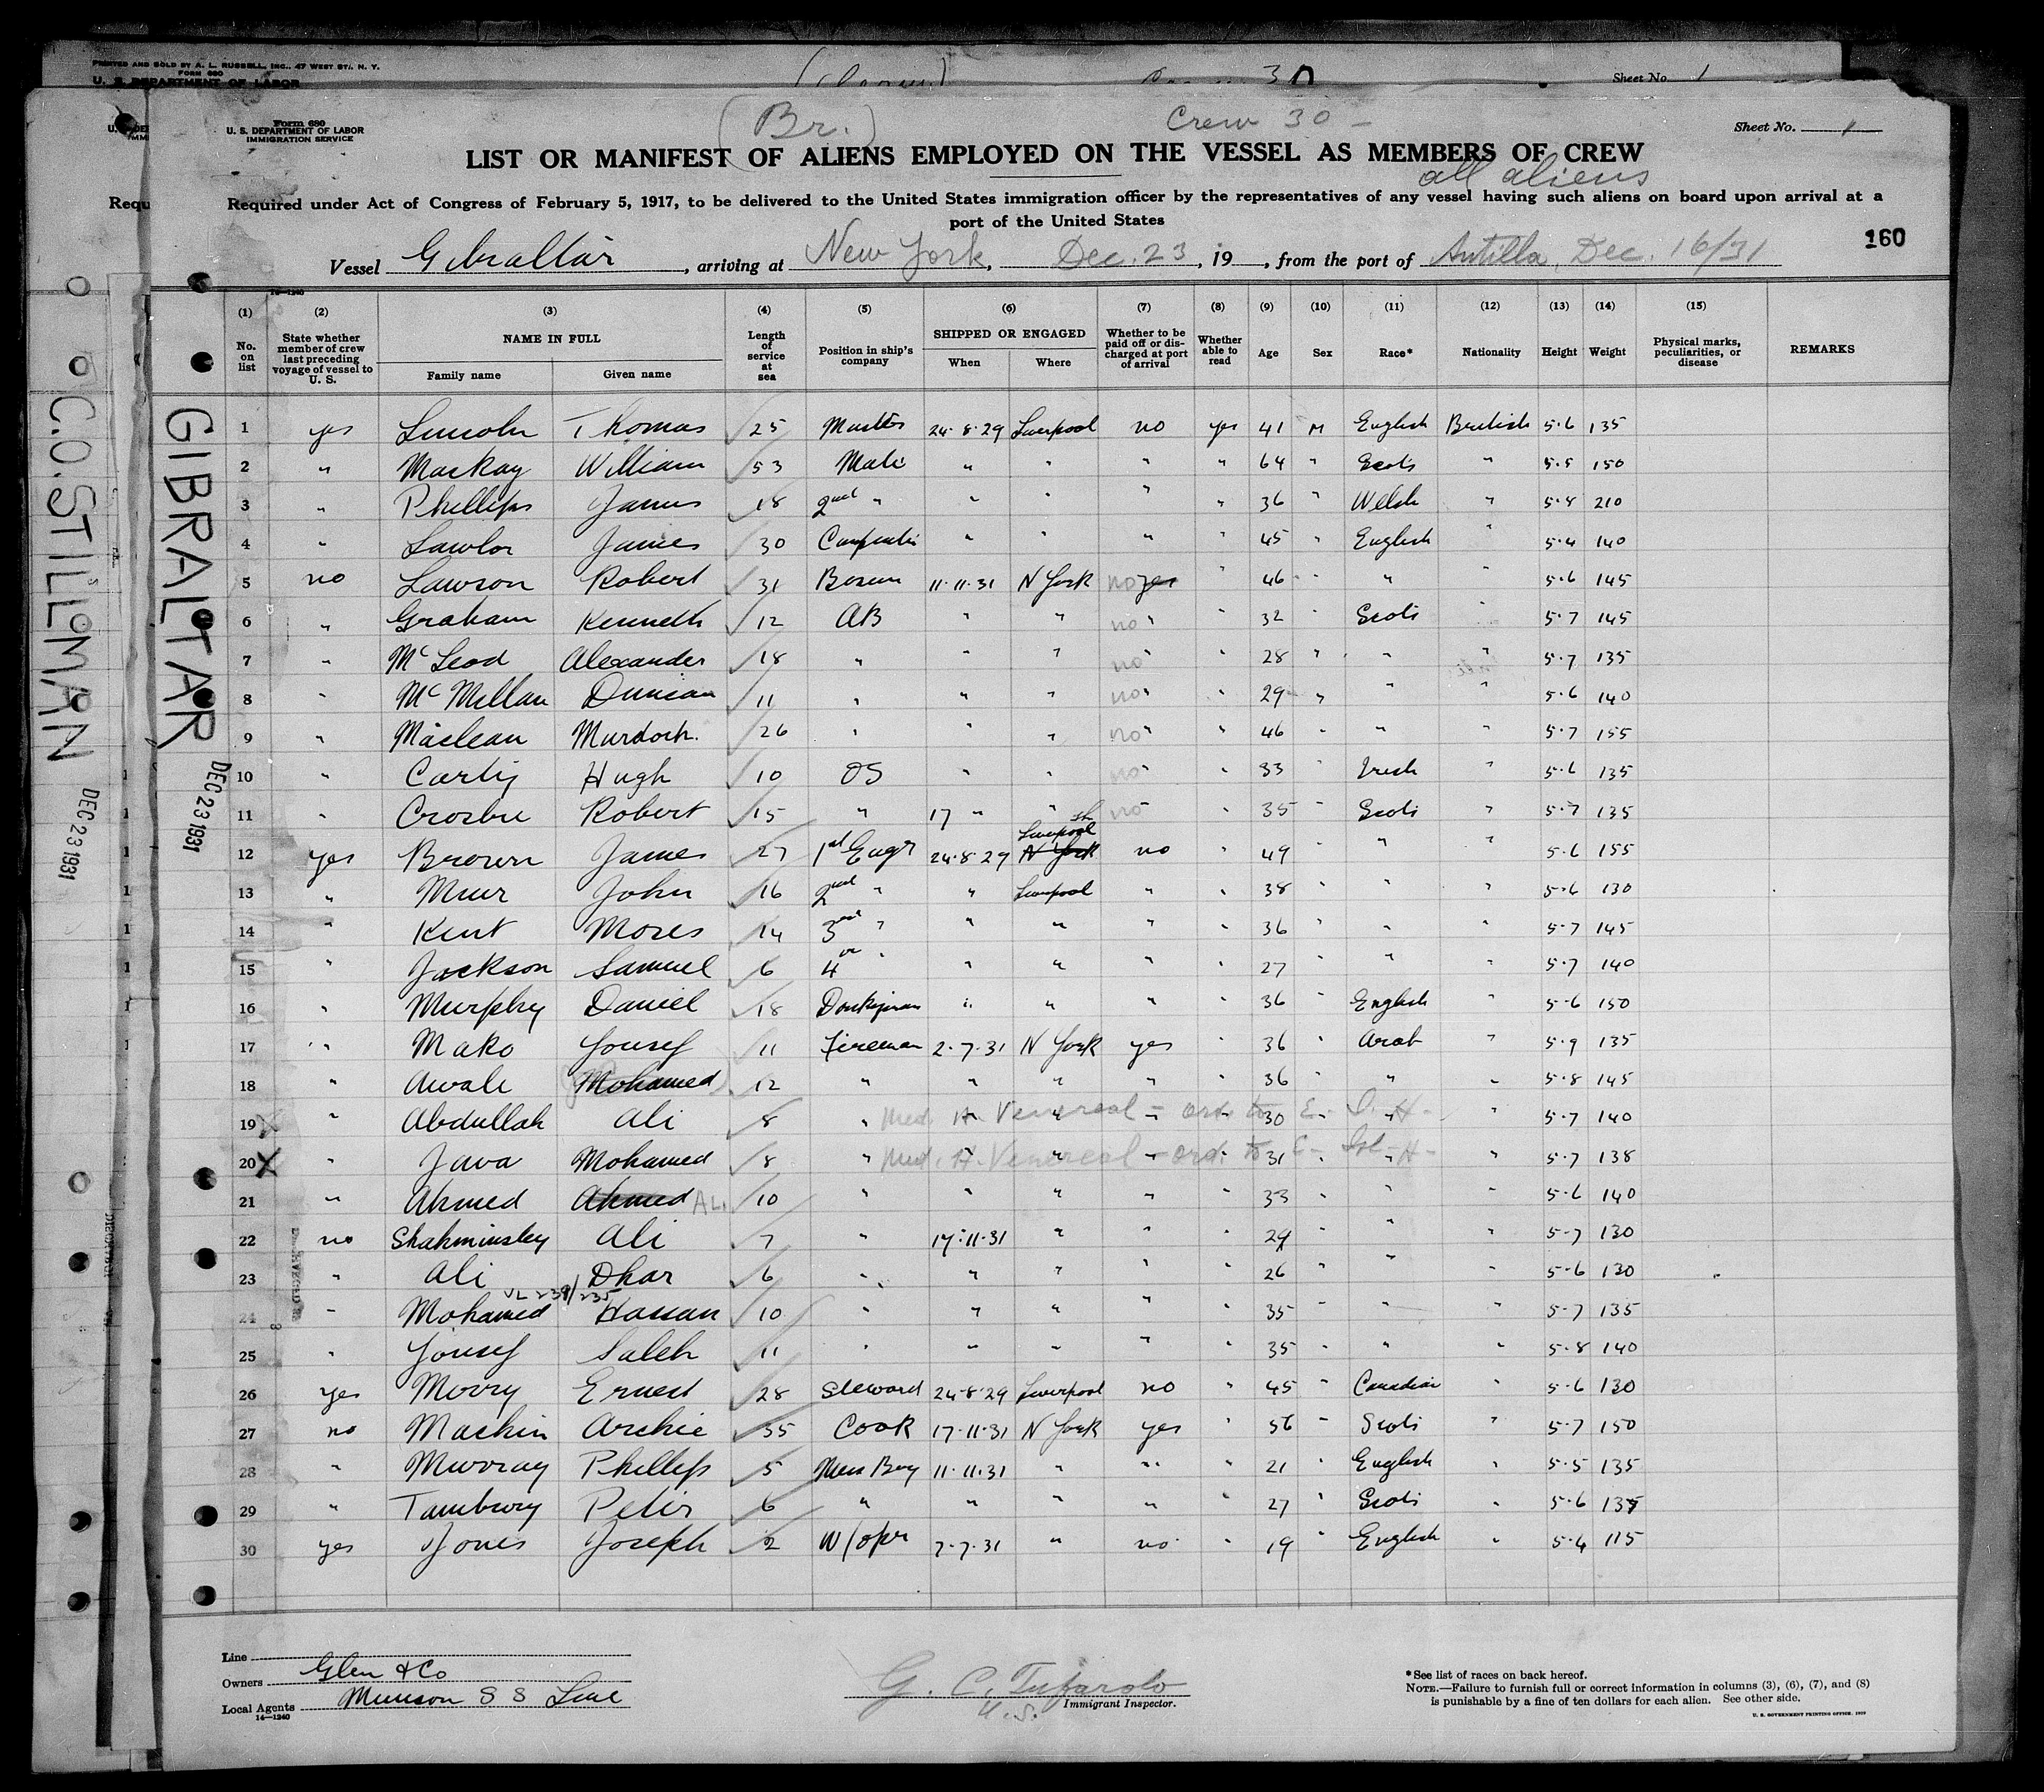 PRINTED AND SOLD BY A. L. RUSSELL, INC., 47 WEST ST., N. Y.
FORM 680
U. S. DEPARTMENT OF LABOR
Sheet No. 1
Form 680
U. S. DEPARTMENT OF LABOR
IMMIGRATION SERVICE
(Br.)
Crew 30 -
Sheet No. 1
LIST OR MANIFEST OF ALIENS EMPLOYED ON THE VESSEL AS MEMBERS OF CREW
all aliens
Required under Act of Congress of February 5, 1917, to be delivered to the United States immigration officer by the representatives of any vessel having such aliens on board upon arrival at a
port of the United States
160
Vessel Gibraltar, arriving at New York, Dec. 23, 19 , from the port of Antilla, Dec. 16/31
(1) (2) (3) (4) (5) (6) (7) (8) (9) (10) (11) (12) (13) (14) (15)
No. on list | State whether member of crew last preceding voyage of vessel to U. S. | NAME IN FULL | Family name | Given name | Length of service at sea | Position in ship's company | SHIPPED OR ENGAGED | When | Where | Whether to be paid off or discharged at port of arrival | Whether able to read | Age | Sex | Race* | Nationality | Height | Weight | Physical marks, peculiarities, or disease | REMARKS
1 yes Lincoln Thomas 25 Master 24-8-29 Liverpool no yes 41 M English British 5-6 135
2 " Mackay William 53 Mate " " " " 64 " Scots " 5-5 150
3 " Phillips James 18 2nd " " " " " 36 " Welsh " 5-8 210
4 " Lawlor James 30 Carpenter " " " " 45 " English " 5-4 140
5 no Lawson Robert 31 Bosun 11-11-31 N York no yes " 46 " " " 5-6 145
6 " Graham Kenneth 12 AB " " no " " 32 " Scots " 5-7 145
7 " McLeod Alexander 18 " " " no " " 28 " " " 5-7 135
8 " McMillan Duncan 11 " " " no " " 29 " " " 5-6 140
9 " Maclean Murdoch 26 " " " no " " 46 " " " 5-7 155
10 " Hugh 10 OS " " no " " 33 " Irish " 5-6 135
11 " Crosbie Robert 15 " 17 " " no " " 35 " Scots " 5-7 135
12 yes Brown James 27 1st Engr 24-8-29 Liverpool N York no " 49 " " " 5-6 155
13 " Muir John 16 2nd " " Liverpool " " 38 " " " 5-6 130
14 " Kent Moses 14 3rd " " " " " 36 " " " 5-7 145
15 " Jackson Samuel 6 4th " " " " " 27 " " " 5-7 140
16 " Murphy Daniel 18 Donkeyman " " " " 36 " English " 5-6 150
17 " Mako Yousef 11 Fireman 2-7-31 N York yes " 36 " Arab " 5-9 135
18 " Awale Mohamed 12 " " " " " 36 " " " 5-8 145
19 X " Abdullah Ali 8 " " " " " 30 " " " 5-7 140
Med. H. Venereal - ord. to E. I. H-
20 X " Java Mohamed 8 " " " " " 31 " " " 5-7 138
Med. H. Venereal - ord. to E- Isl- H-
21 " Ahmed Ahmed ALI 10 " " " " " 33 " " " 5-6 140
22 no Shahminsley Ali 7 " 17-11-31 " " " 29 " " " 5-7 130
23 " Ali Dhar 6 " " " " " 26 " " " 5-6 130
24 " Mohamed Hassan 10 " " " " " 35 " " " 5-7 135
25 " Yousef Saleh 11 " " " " " 35 " " " 5-8 140
26 yes Morry Ernest 28 Steward 24-8-29 Liverpool no " 45 " Canadian " 5-6 130
27 no Machin Archie 35 Cook 17-11-31 N York yes " 56 " Scots " 5-7 150
28 " Murray Phillip 5 Mess Boy 11-11-31 " " " 21 " English " 5-5 135
29 " Tambury Peter 6 " " " " " 27 " Scots " 5-6 135
30 yes Jones Joseph 2 W/opr 7-7-31 " no " 19 " English " 5-4 115
C.O. STILLMAN
DEC 23 1931
GIBRALTAR
DEC 23 1931
Line
Owners Glen & Co
Local Agents Munson S S Line
14-1240
G. C. Tufarolo
U.S. Immigrant Inspector.
*See list of races on back hereof.
NOTE.—Failure to furnish full or correct information in columns (3), (6), (7), and (8)
is punishable by a fine of ten dollars for each alien. See other side.
U. S. GOVERNMENT PRINTING OFFICE: 1929